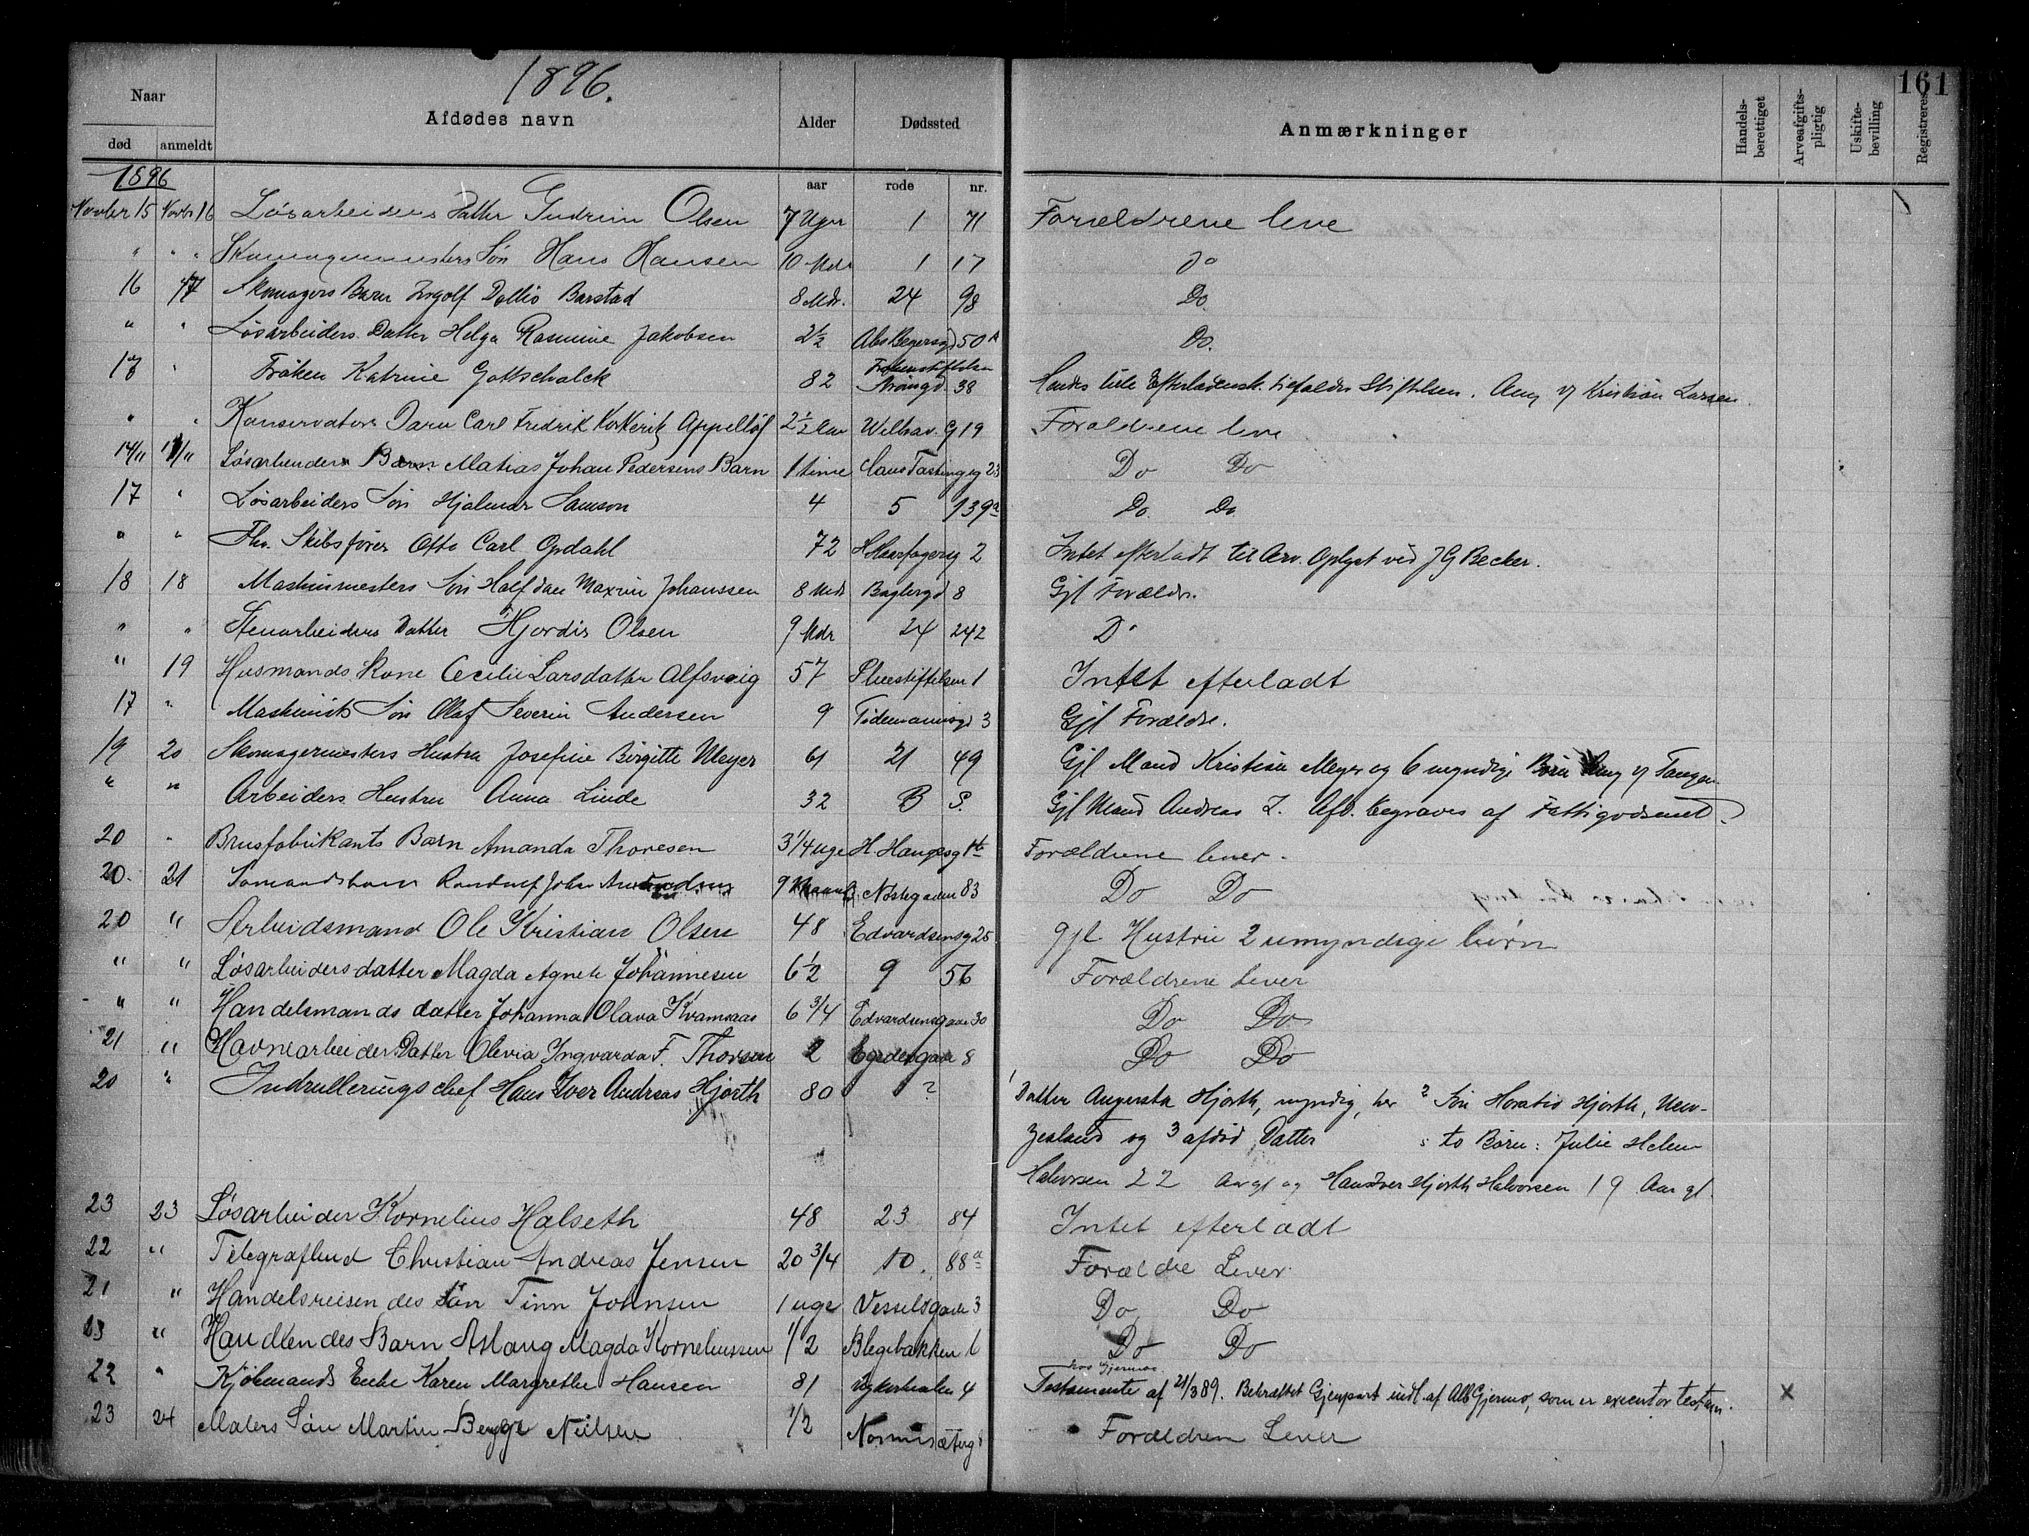 1896.
161
Naar
død
anmeldt
Afdødes navn
Alder
aar
Dødssted
rode
nr.
Anmærkninger
Handels-berettiget
Arveafgifts-pligtig
Uskifte-bevilling
Registreres
1896
Novber 15 Novbr 16 Løsarbeiders Datter Gudrun Olsen 7 Uger 1 71 Forældrene leve
" " Skomagermesters Søn Hans Hansen 10 Mdr 1 17 do
16 17 Skomagers Barn Ingolf Barstad 8 Mdr. 24 98 Do.
" " Løsarbeiders Datter Helga Rasmine Jakobsen 2½ 50 Do.
17 " Frøken Katrine Gottschalck 82 38 Hendes lille Efterladensk. tilfalder Stiftelsen. Anm. v/ Kristian Larsen.
" " Konservators Barn Carl Fredrik Appelløf 2½ Aar Welhav. G 19 Forældrene leve
14/11 17/11 Løsarbeider Matias Johan Pedersens Barn 1 time 23 Do Do
17 " Løsarbeiders Søn Hjalmar Samson 4 5 139a Do. Do.
" " Fhv. Skibsfører Otto Carl Opdahl 72 H Haarfagersg 2 Intet efterladt til Arv. Oplyst ved J G Becker.
18 18 Maskinmesters Søn Halfdan Johanssen 8 Mdr Baglergd 8 Gjl Forældr.
" " Stenarbeiders Datter Hjordis Olsen 9 Mdr 24 242 Do
" 19 Husmands Kone Cecilie Larsdatter Alfsvaig 57 Pleiestiftelsen 1 Intet efterladt
17 " Maskinists Søn Olaf Severin Andersen 9 Tidemannsgd 3 Gjl Forældre.
19 20 Skomagermesters Hustru Josefine Birgitte Meyer 61 21 49 Gjl Mand Kristian Meyer og 6 myndige Børn Anm v/
" " Arbeiders Hustru Anna Linde 32 B S. Gjl Mand Andreas L. Afd. begraves af Fattigvæsenet.
20 " Brusfabrikants Barn Amanda Thoresen 3 1/4 uge H. Haugesg Forældrene lever.
20. 21 John 9 Nøstegaden 83 Do Do
20 " Arbeidsmand Ole Kristian Olsen 48 Edvardsensg 25 gjl Hustru 2 umyndige børn
" " Løsarbeidersdatter Magda Agnete Johannesen 6½ 9 56 Forældrene Lever
" " Handelsmands datter Johanna Olava Kvamsaas 6 3/4 Edvardsensgade 30 Do Do
21 " Havnearbeider Datter Olevia Ingvarda F. Thorsen 2 8 Do Do
20 " Indrulleringschef Hans Iver Andreas Hjorth 80 ? 1 Datter Augusta Hjorth, myndig, her 2 Søn Horatio Hjorth, New-
Zealand og 3 afdød Datter s to Børn: Julie Helene
Halvorsen 22 Aar gl og Hans Iver Hjorth Halvorsen 19 Aar gl.
23 23 Løsarbeider Kornelius Halseth 48 23 84 Intet efterladt
22 " Christian Andreas Jensen 20 3/4 10. 88a Forældre Lever
21 " Handelsreisendes Søn Finn Johnsen 1 uge Vesselsgade 3 Do Do
23 " Handlendes Barn Aslaug Magda Korneliussen 1/2 Blegebakken 6 Do Do
22 " Kjøbmands Enke Karen Margrethe Hansen 81 4 Testamente af 21/3 89. Bekræftet Gjenpart indl. af Alb Gjermo, som er executor testam. X
hos Gjermoe.
23 24 Malers Søn Martin Berge Nielsen 1/2 Forældren Lever